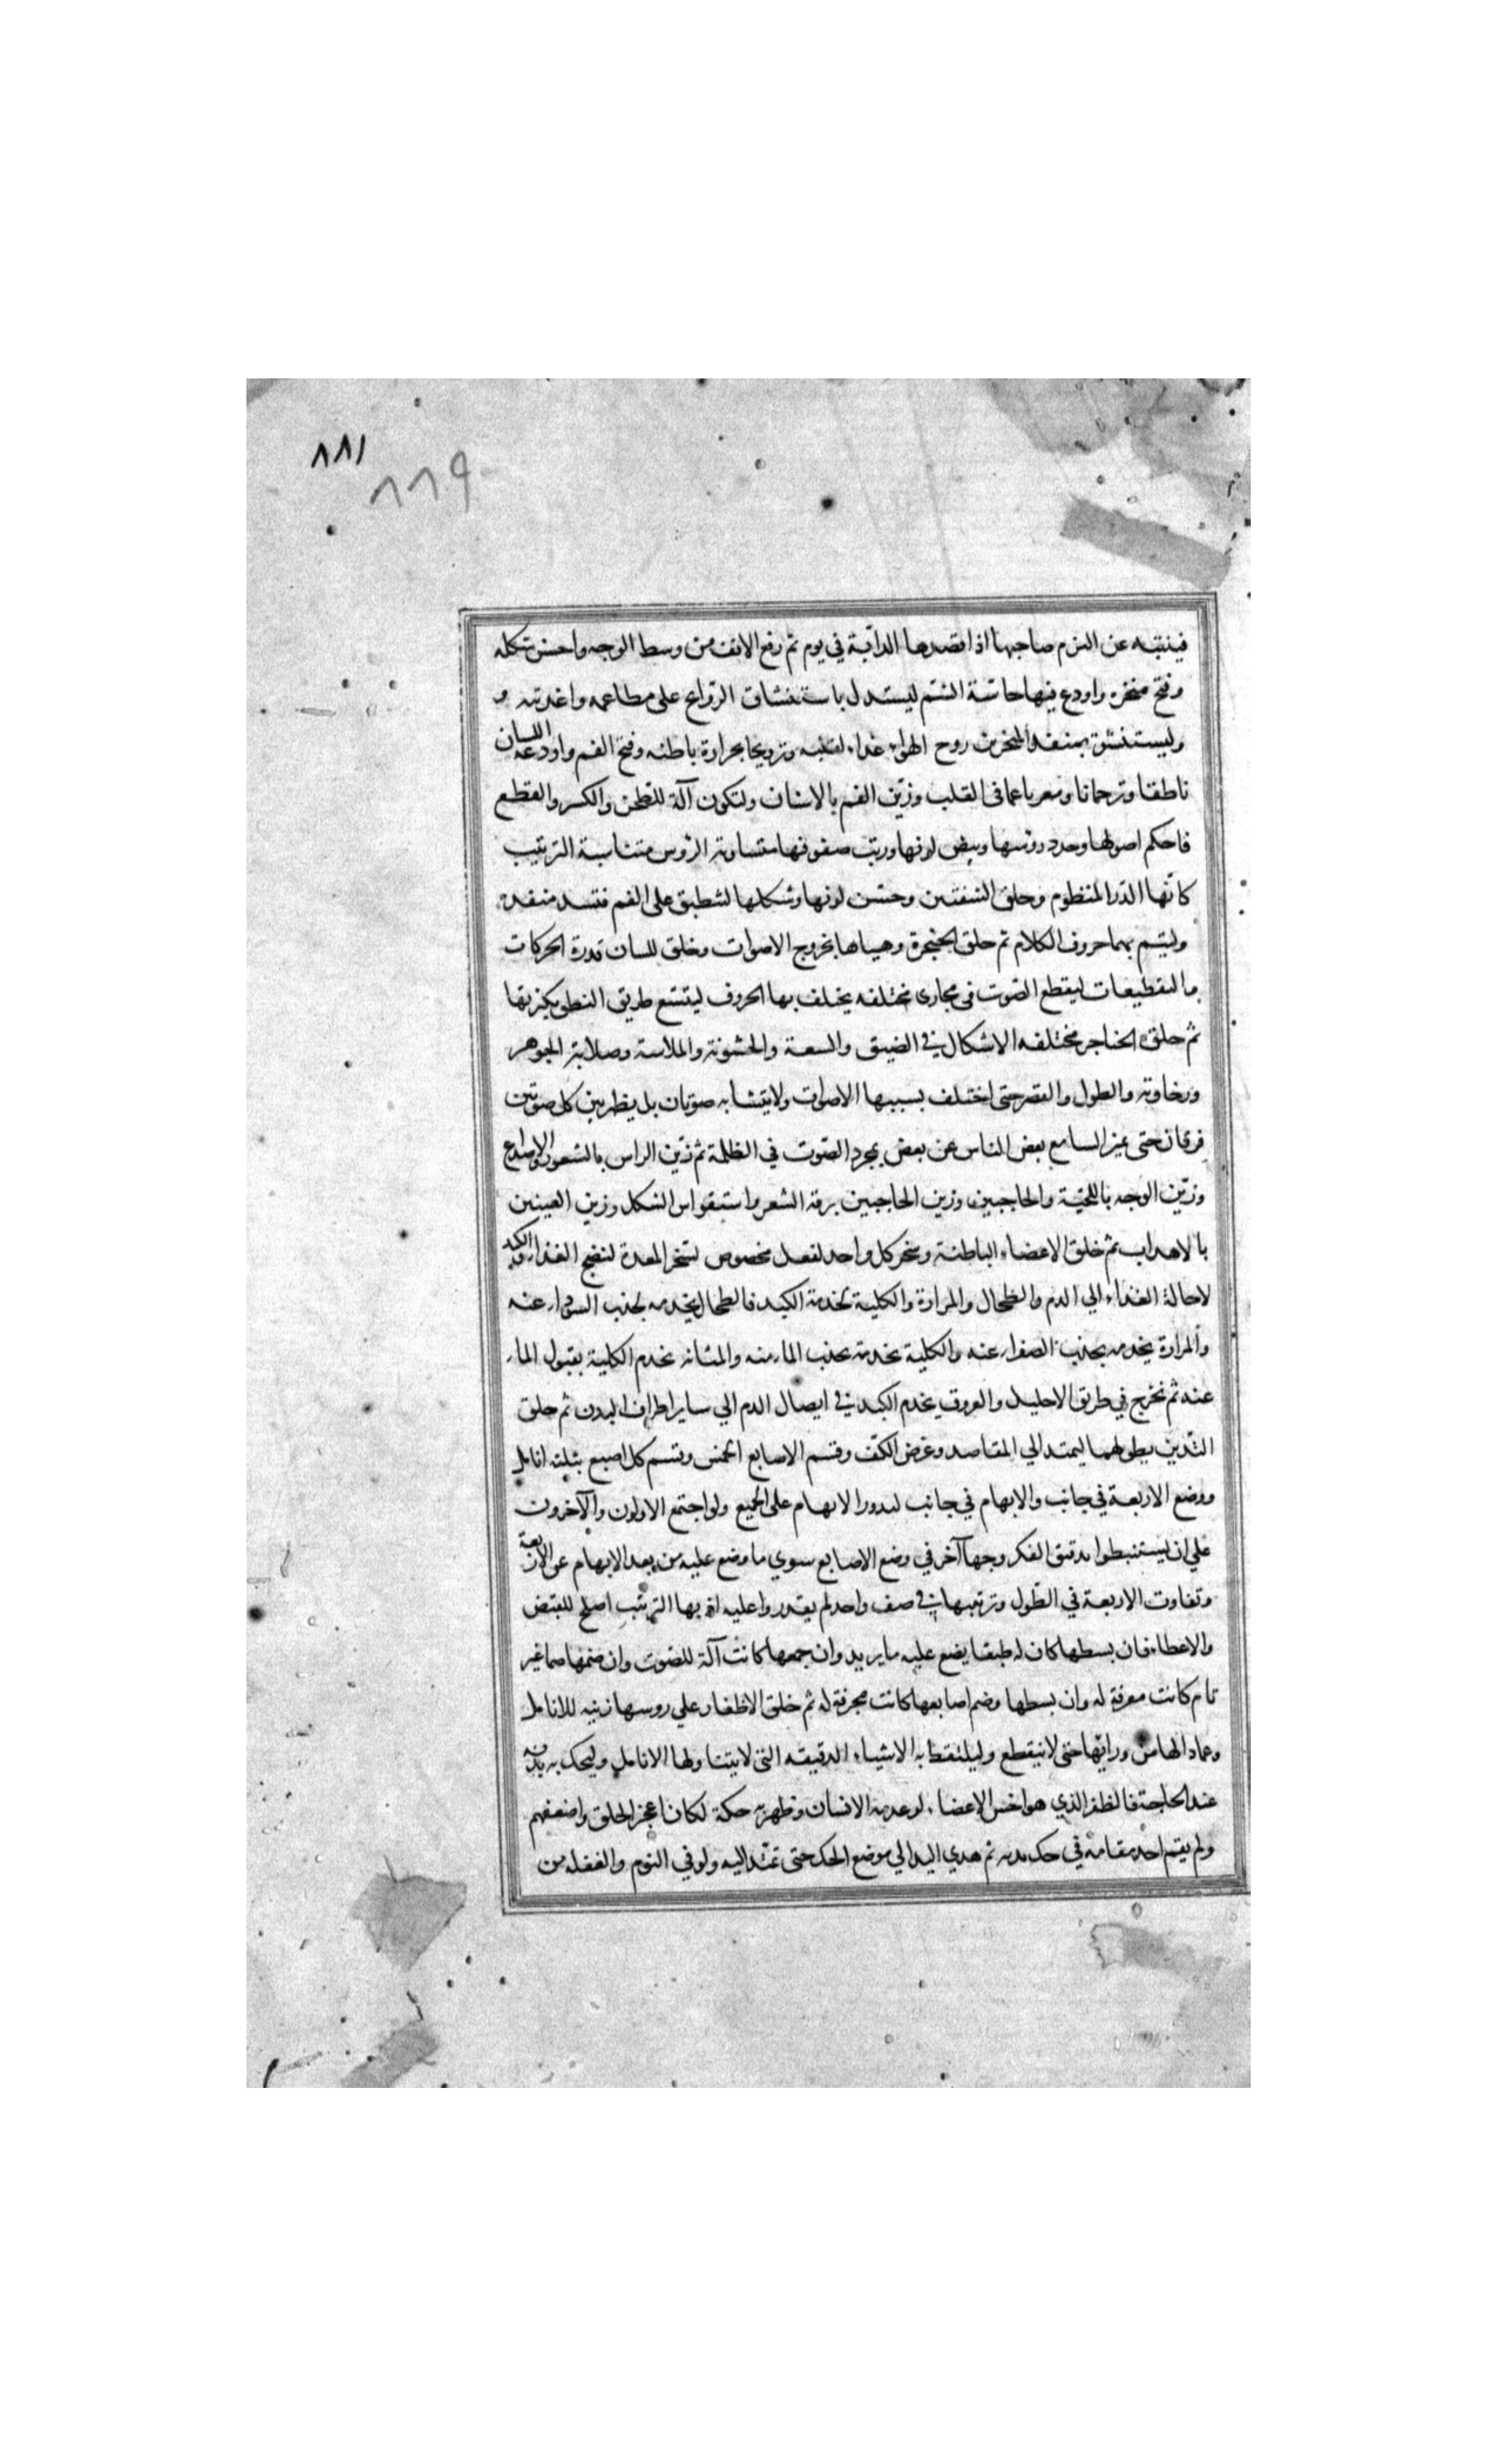 ٨٨١
٨٨٩
فينتبه عن النوم صاحبها اذا قصدها الدابة في يوم ثم رفع الانف من وسط الوجه واحسن شكله
وفتح منخره واودع فيها حاسّة الشم ليستدل باستنشاق الروايح على مطاعمه واغذيته و
وليستنشق بمنفذ المنخرين روح الهواء غذاء لقلبه وترويحا بحرارة باطنه وفتح الفم واودعه اللسان
ناطقا وترجمانا ومعربا عما في القلب وزيّن الفم بالاسنان ولتكون آلة للطحن والكسر والقطع
فاحكم اصولها وحدد روسها وبيض لونها ورتب صفوفها متساوية الرؤس متناسبة الترتيب
كانّها الدّر المنظوم وخلق الشفتين وحسّن لونها وشكلها لتنطبق على الفم فتسد منفذه
وليتم بهما حروف الكلام ثم خلق الحنجرة وهياها بخروج الاصوات وخلق للسان قدرة الحركات
والتقطيعات ليقطع الصّوت في مجاري مختلفه يختلف بها الحروف ليتسع طريق النطق بكثرتها
ثم خلق الحناجر مختلفه الاشكال في الضيق والسعة والخشونة والملاسة وصلابة الجوهر
ورخاوته والطول والقصر حتى اختلف بسببها الاصوات ولا يتشابه صوتان بل يظهر بين كل صوتين
فرقان حتى يميز السامع بعض الناس عن بعض بمجرد الصّوت في الظلمة ثم زيّن الراس بالشعور والاصداغ
وزيّن الوجه باللحيّة والحاجبين وزين الحاجبين برقة الشعر واستقواس الشكل وزين العينين
بالاهداب ثم خلق الاعضاء الباطنة وسخر كل واحد لفعل مخصوص لسخر المعدة لنضج الغذاء والكبد
لاحالة الغذاء الي الدم والطحال والمرارة والكلية لخدمة الكبد فالطحال يخدمه بجذب السوداء عنه
والمرارة يخدمه بجذب الصفراء عنه والكلية يخدمه بجذب الماء منه والمثانه يخدم الكلية بقبول الماء
عنه ثم تخرج في طريق الاحليل والعروق يخدم الكبد في ايصال الدم الي ساير اطراف البدن ثم خلق
اليّدين بطولهما ليمتد الي المقاصد وعرض الكفّ وقسم الاصابع الخمس وقسم كل اصبع بثلثه انامل
ووضع الاربعة في جانب والابهام في جانب ليدور الابهام على الجميع ولو اجتمع الاولون والآخرون
علي ان يستنبطوا بدقيق الفكر وجهاً آخر في وضع الاصابع سوي ما وضع عليه من بعد الابهام عن الاربعة
وتفاوت الاربعة في الطّول وترتيبها في صف واحد لم يقدروا عليه اذ بها الترتيب اصلح للقبض
والاعطاء فان بسطها كان له طبقا يضع عليه ما يريد وان جمعها كانت آلة للضرب وان ضمها ضما غير
تام كانت مغرفة له وان بسطها وضم اصابعها كانت مجرفة له ثم خلق الاظفار علي روسها زينه للانامل
وعماد الها من ورائها حتى لا ينقطع وليلتقط به الاشياء الدقيقه التي لا يتناولها الانامل وليحك به بدنه
عند الحاجة فالظفر الذي هو اخس الاعضاء لو عدمه الانسان وظهر به حكة لكان اعجز الخلق واضعفهم
ولم يقم احد مقامه في حك بدنه ثم هدي اليد الي موضع الحك حتى تمتد اليه ولو في النوم والغفلة من